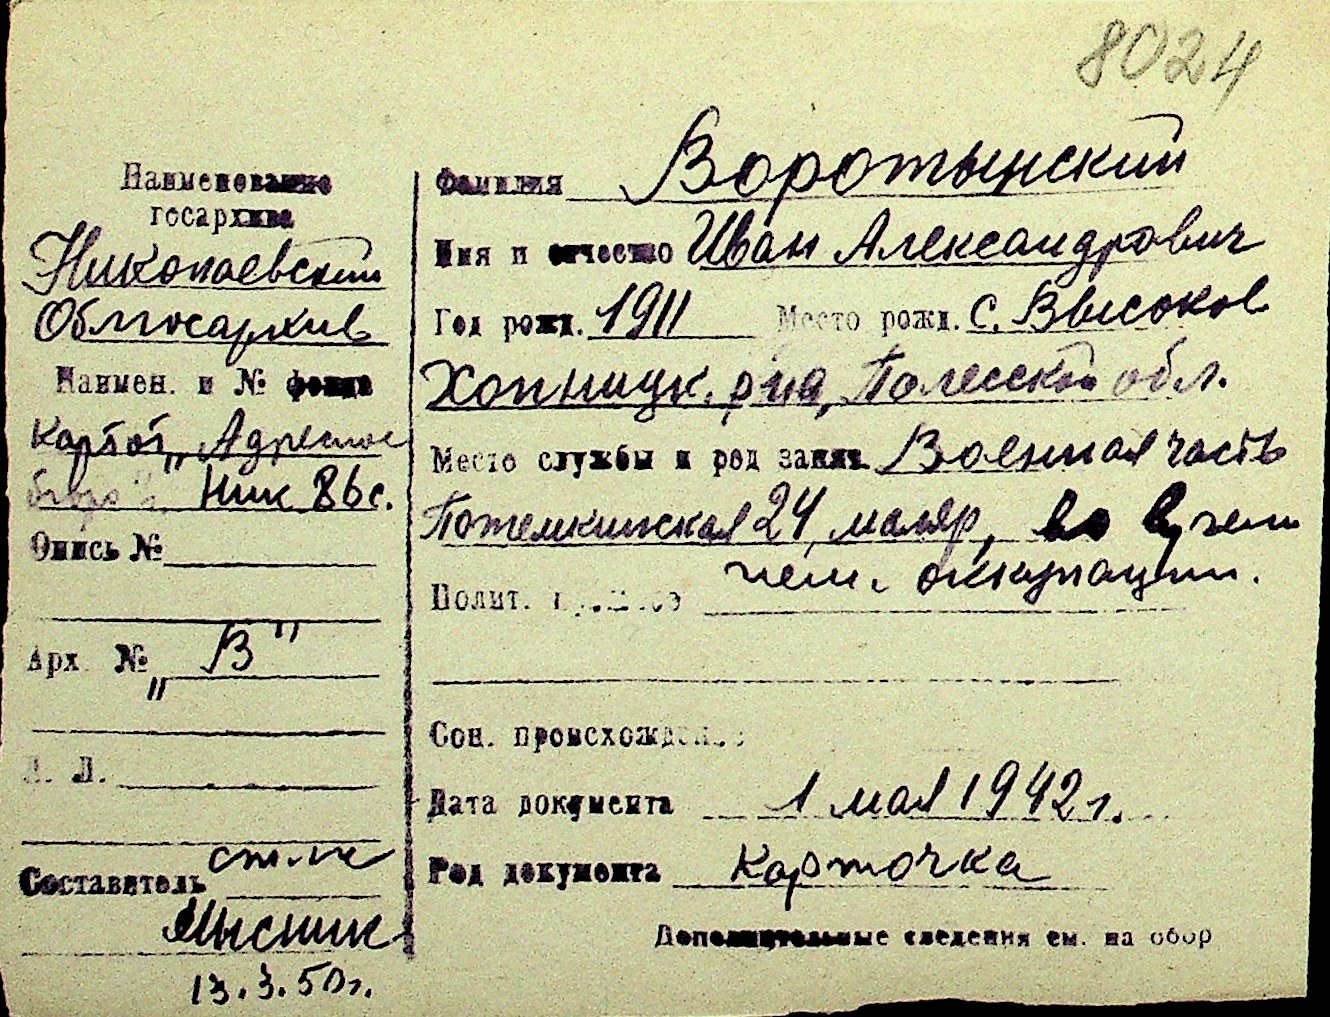 8024
Наименование
госархива
Николаевский
Облгосархив
Наимен. и № фонда
Картот. "Адресное
бюро". Ник 86с.
Опись №
Арх. № "В"
Л. Л.
Составитель ст. н.
Мысник
13.3.50г.
Фамилия Воротынский
Имя и отчество Иван Александрович
Год рожд. 1911 Место рожд. с. Высоков
Хопницк. р-на, Полесской обл.
Место службы и род занят. Военная часть
Потемкинская 24, маляр,
нем. оккупации.
Полит. прошлое
Соц. происхождение
Дата документа 1 мая 1942 г.
Род документа Карточка
Дополнительные сведения см. на обор